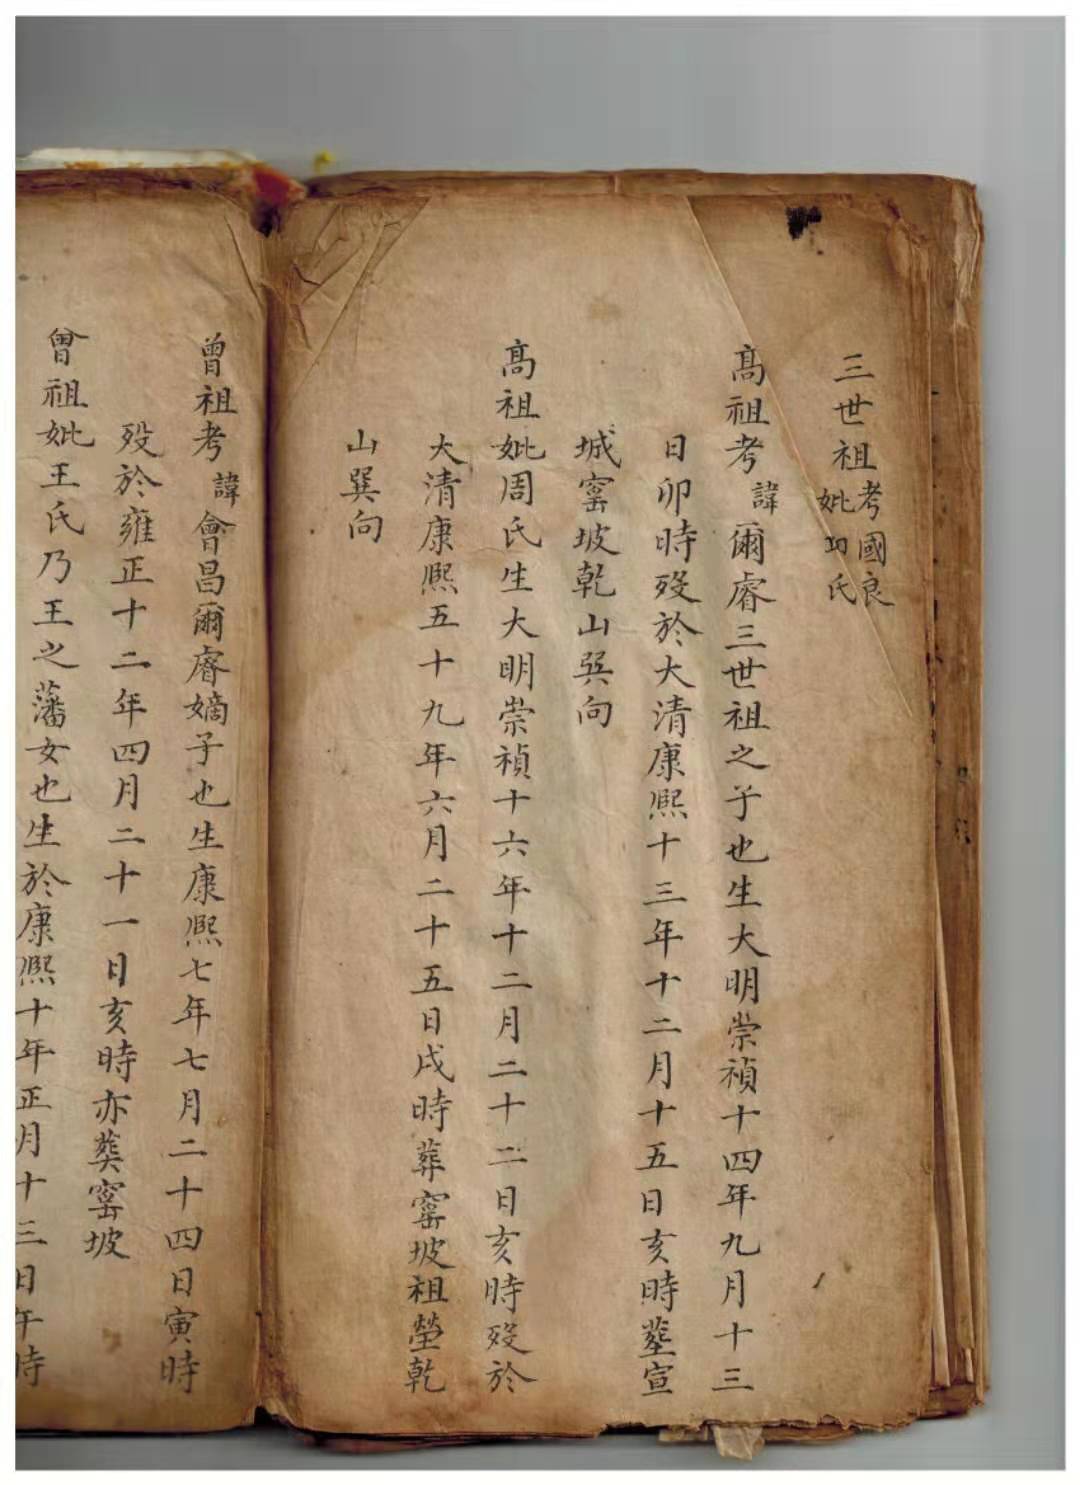 三世祖考國良
妣 氏
高祖考諱爾睿三世祖之子也生大明崇禎十四年九月十三
日卯時歿於大清康熙十三年十二月十五日亥時塟宣
城窰坡乾山巽向
高祖妣周氏生大明崇禎十六年十二月二十二日亥時歿於
大清康熙五十九年六月二十五日戌時葬窰坡祖塋乾
山巽向
曾祖考諱會昌爾睿嫡子也生康熙七年七月二十四日寅時
歿於雍正十二年四月二十一日亥時亦葬窰坡
曾祖妣王氏乃王之藩女也生於康熙十年正月十三日午時